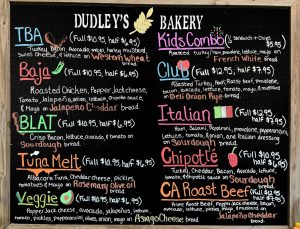 DUDLEY'S BAKERY
TBA (Full $10.95, half $6.95)
Turkey, Bacon, Avocado, mayo, mustard,
Swiss Cheese, & lettuce on Western Wheat
bread.
Baja (Full $10.95, half $6.95)
Roasted Chicken, Pepper Jack cheese,
Tomato, Jalapeño, onion, lettuce,
& Mayo on Jalapeño Cheddar bread
BLAT (Full $10.95, half $6.95)
Crisp Bacon, lettuce, avocado, & tomato on
Sourdough bread.
Tuna Melt (Full $10.95, half $6.95)
Albacore Tuna, Cheddar cheese, pickles,
tomatoes & Mayo on Rosemary Olive oil
Veggie (Full $10.95, half $6.95)
Pepper Jack cheese, avocado, jalapeños, lettuce,
tomato, onion & mayo on Asiago Cheese bread
Kids Combo (½ Sandwich + Chips)
$5.95
Roasted Turkey, mayo, lettuce, on
French White bread.
Club (Full $12.95, half $7.95)
Turkey, Bacon,
on Deli Onion Rye bread
Italian (Full $12.95, half $7.95)
Ham, Salami, Pepperoni, provolone, pepperoncini,
lettuce, tomato, onion, and Italian dressing
on Sourdough bread.
Chipotle (Full $10.95, half $6.95)
Turkey, Cheddar, Bacon, Avocado, lettuce,
tomato, & chipotle on Sourdough bread.
CA Roast Beef (Full $12.95, half $7.95)
Prime Roast Beef, Pepper Jack cheese, bacon, onion,
tomato, lettuce, mayo, on
Jalapeño Cheddar
bread.